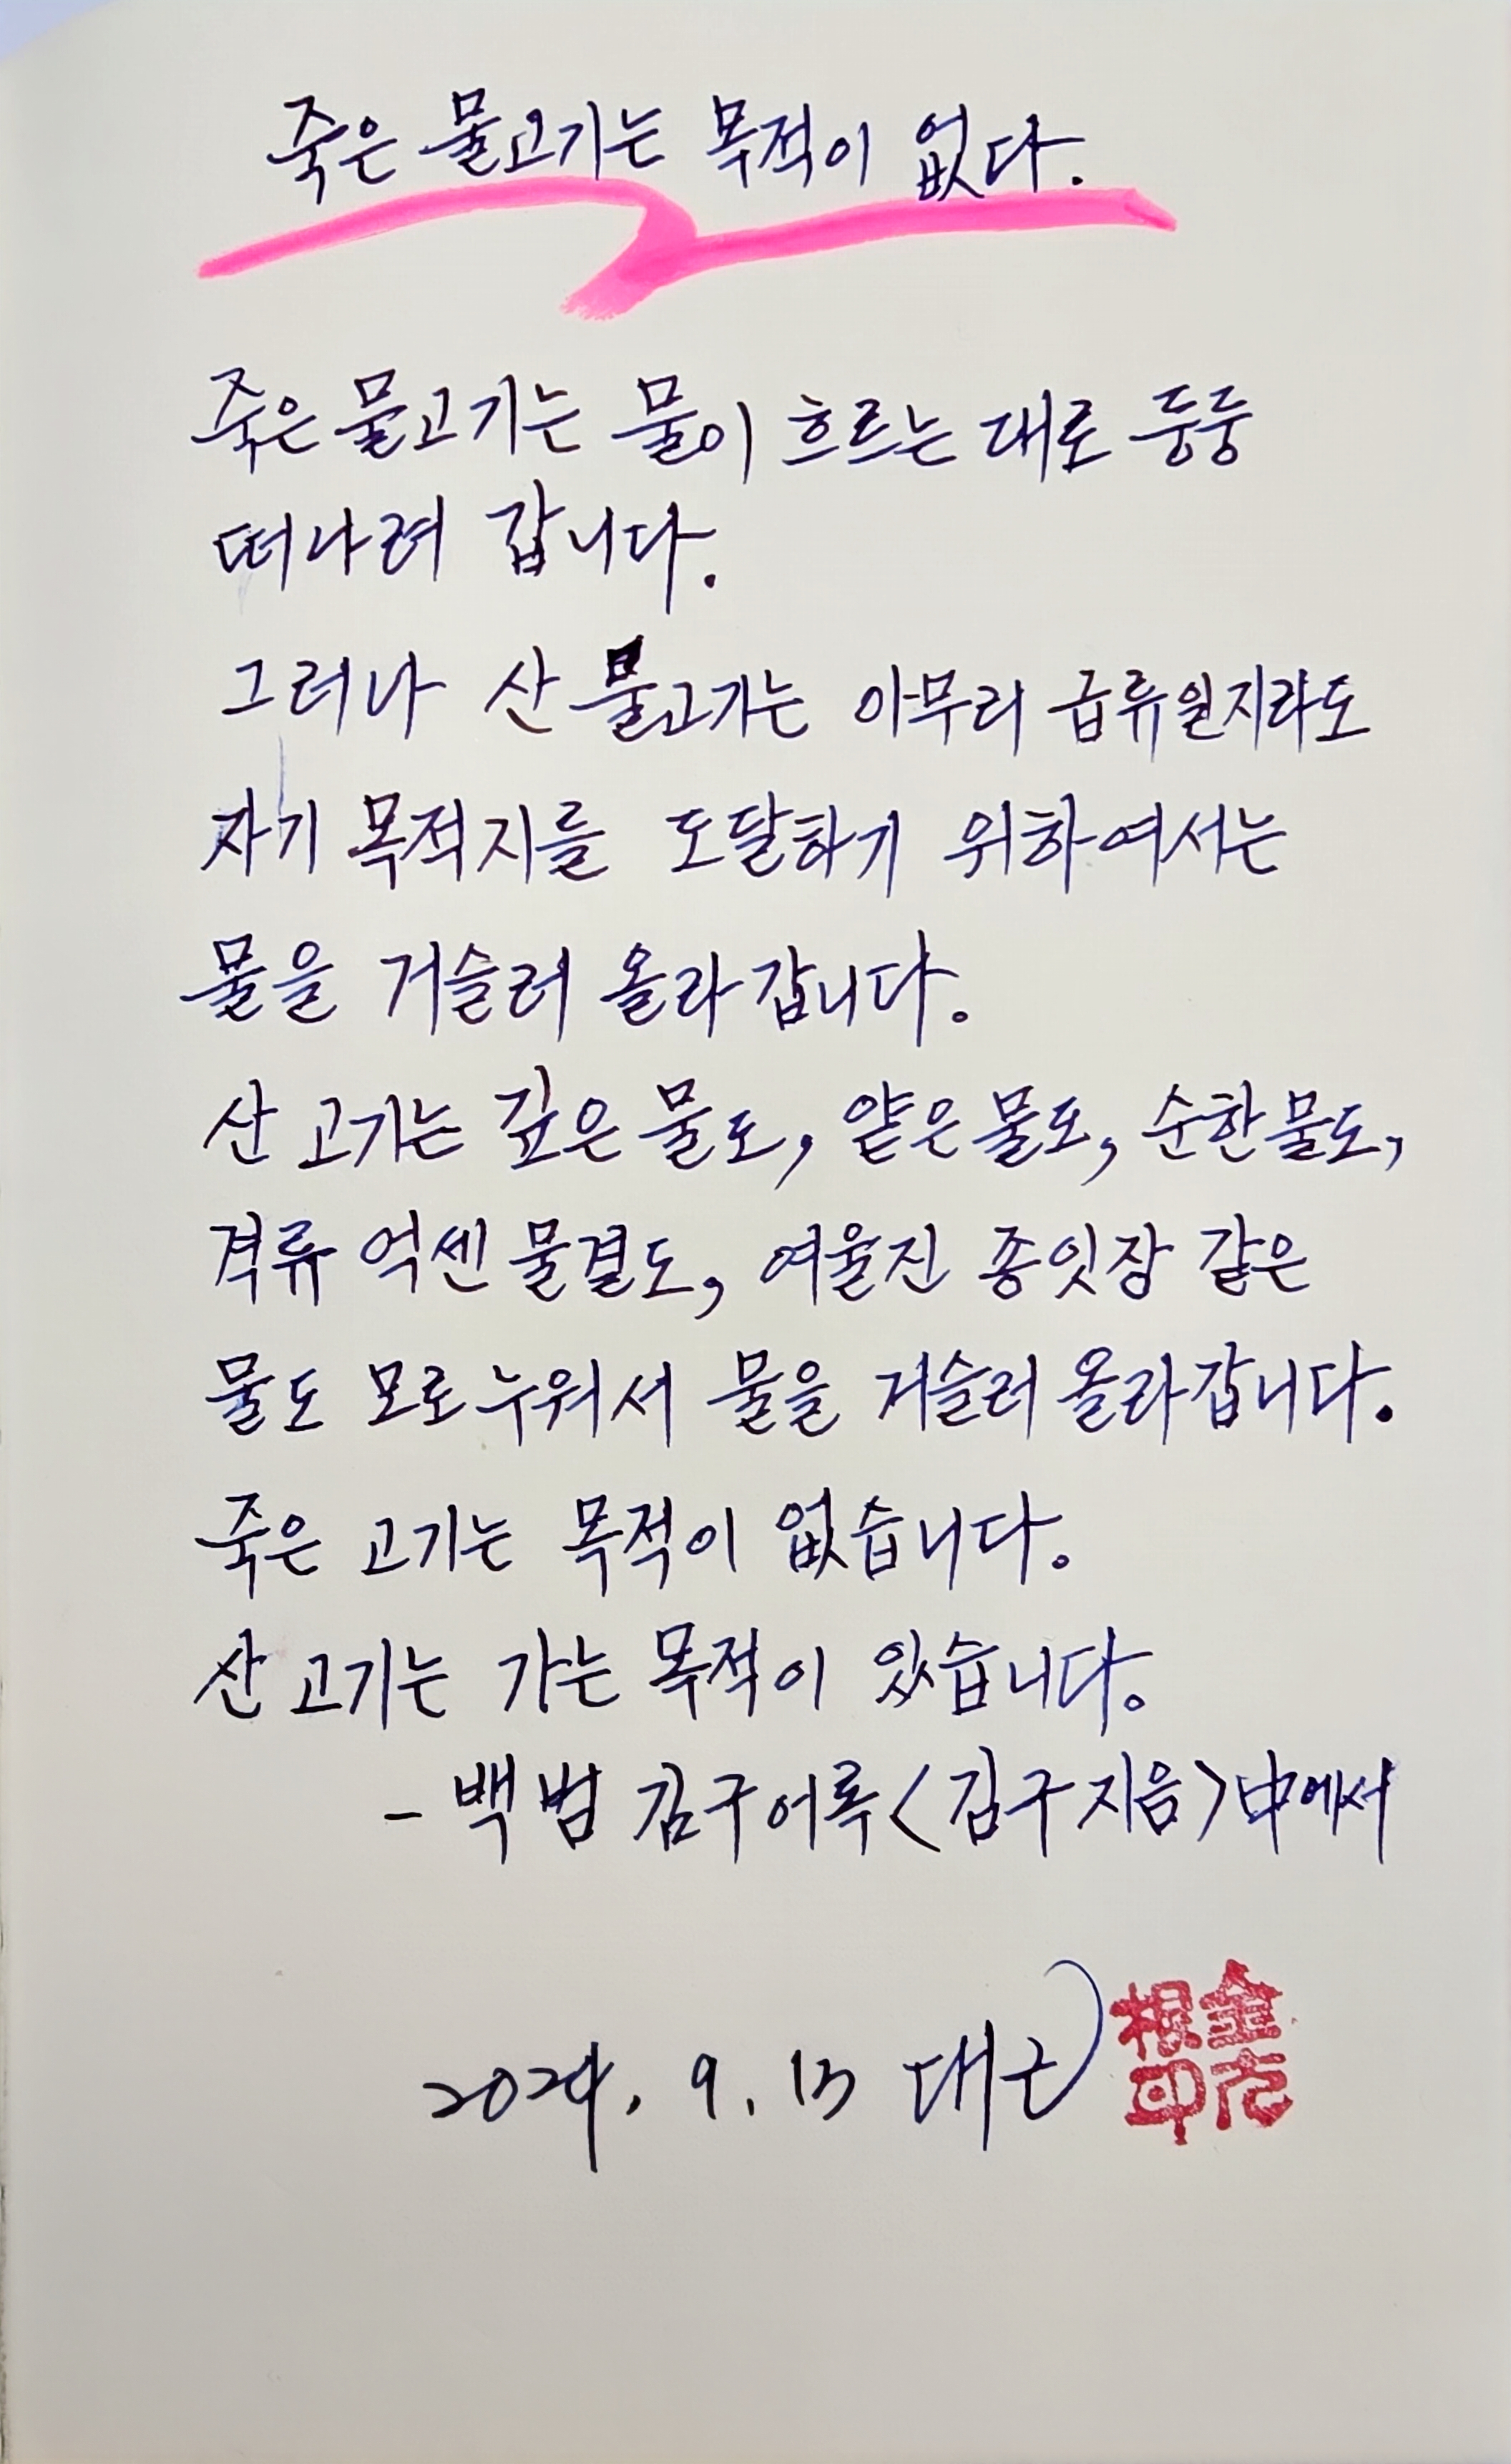 죽은 물고기는 목적이 없다.
죽은 물고기는 물이 흐르는 대로 둥둥
떠나려 갑니다.
그러나 산 물고기는 아무리 급류일지라도
자기 목적지를 도달하기 위하여서는
물을 거슬러 올라 갑니다.
산 고기는 깊은 물도, 얕은 물도, 순한 물도,
격류 억센 물결도, 여울진 종잇장 같은
물도 모로 누워서 물을 거슬러 올라갑니다.
죽은 고기는 목적이 없습니다.
산 고기는 가는 목적이 있습니다.
- 백범 김구 어록 <김구 지음> 中에서
2024. 9. 13 대근